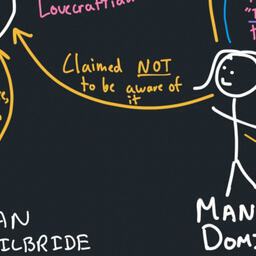 Lovecraftian
Claimed NOT
to be aware of
it
AN
ILBRIDE
MAN
DOM